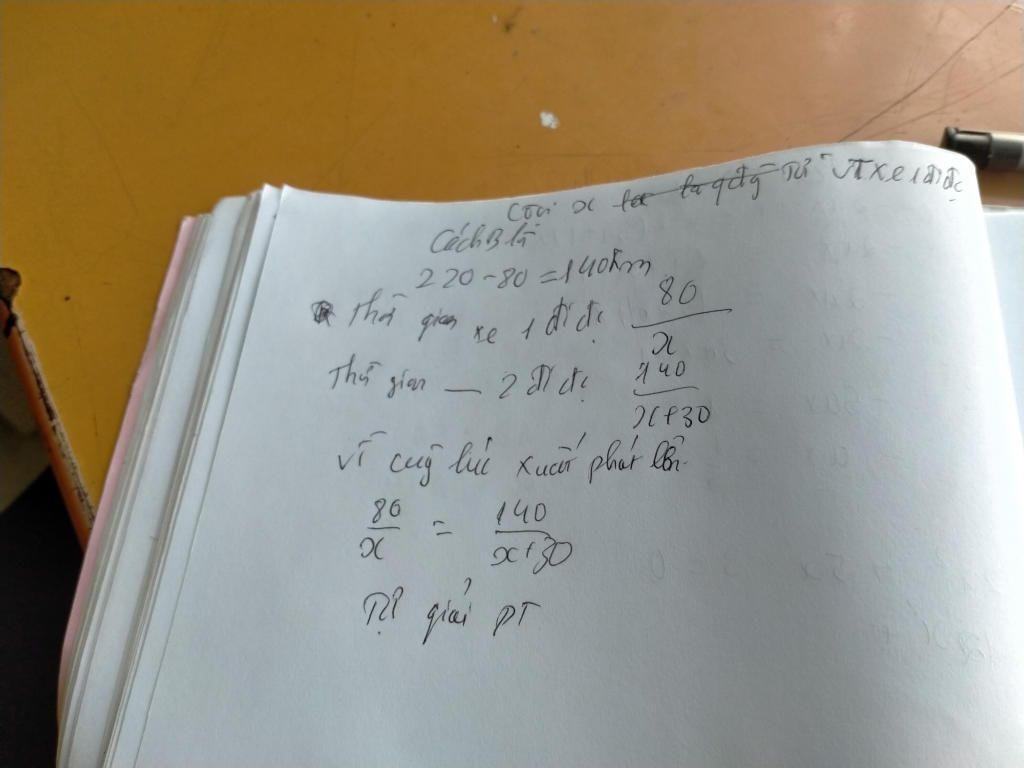 Gọi x là vt xe 1 đi đc
Cách B là
220 - 80 = 140km
Thời gian xe 1 đi đc 80/x
Thời gian — 2 đi đc 140/x+30
Vì cùg lúc xuất phát lên
80/x = 140/x+30
Tự giải PT